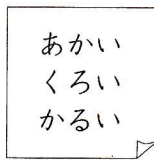 あかい
くろい
かるい